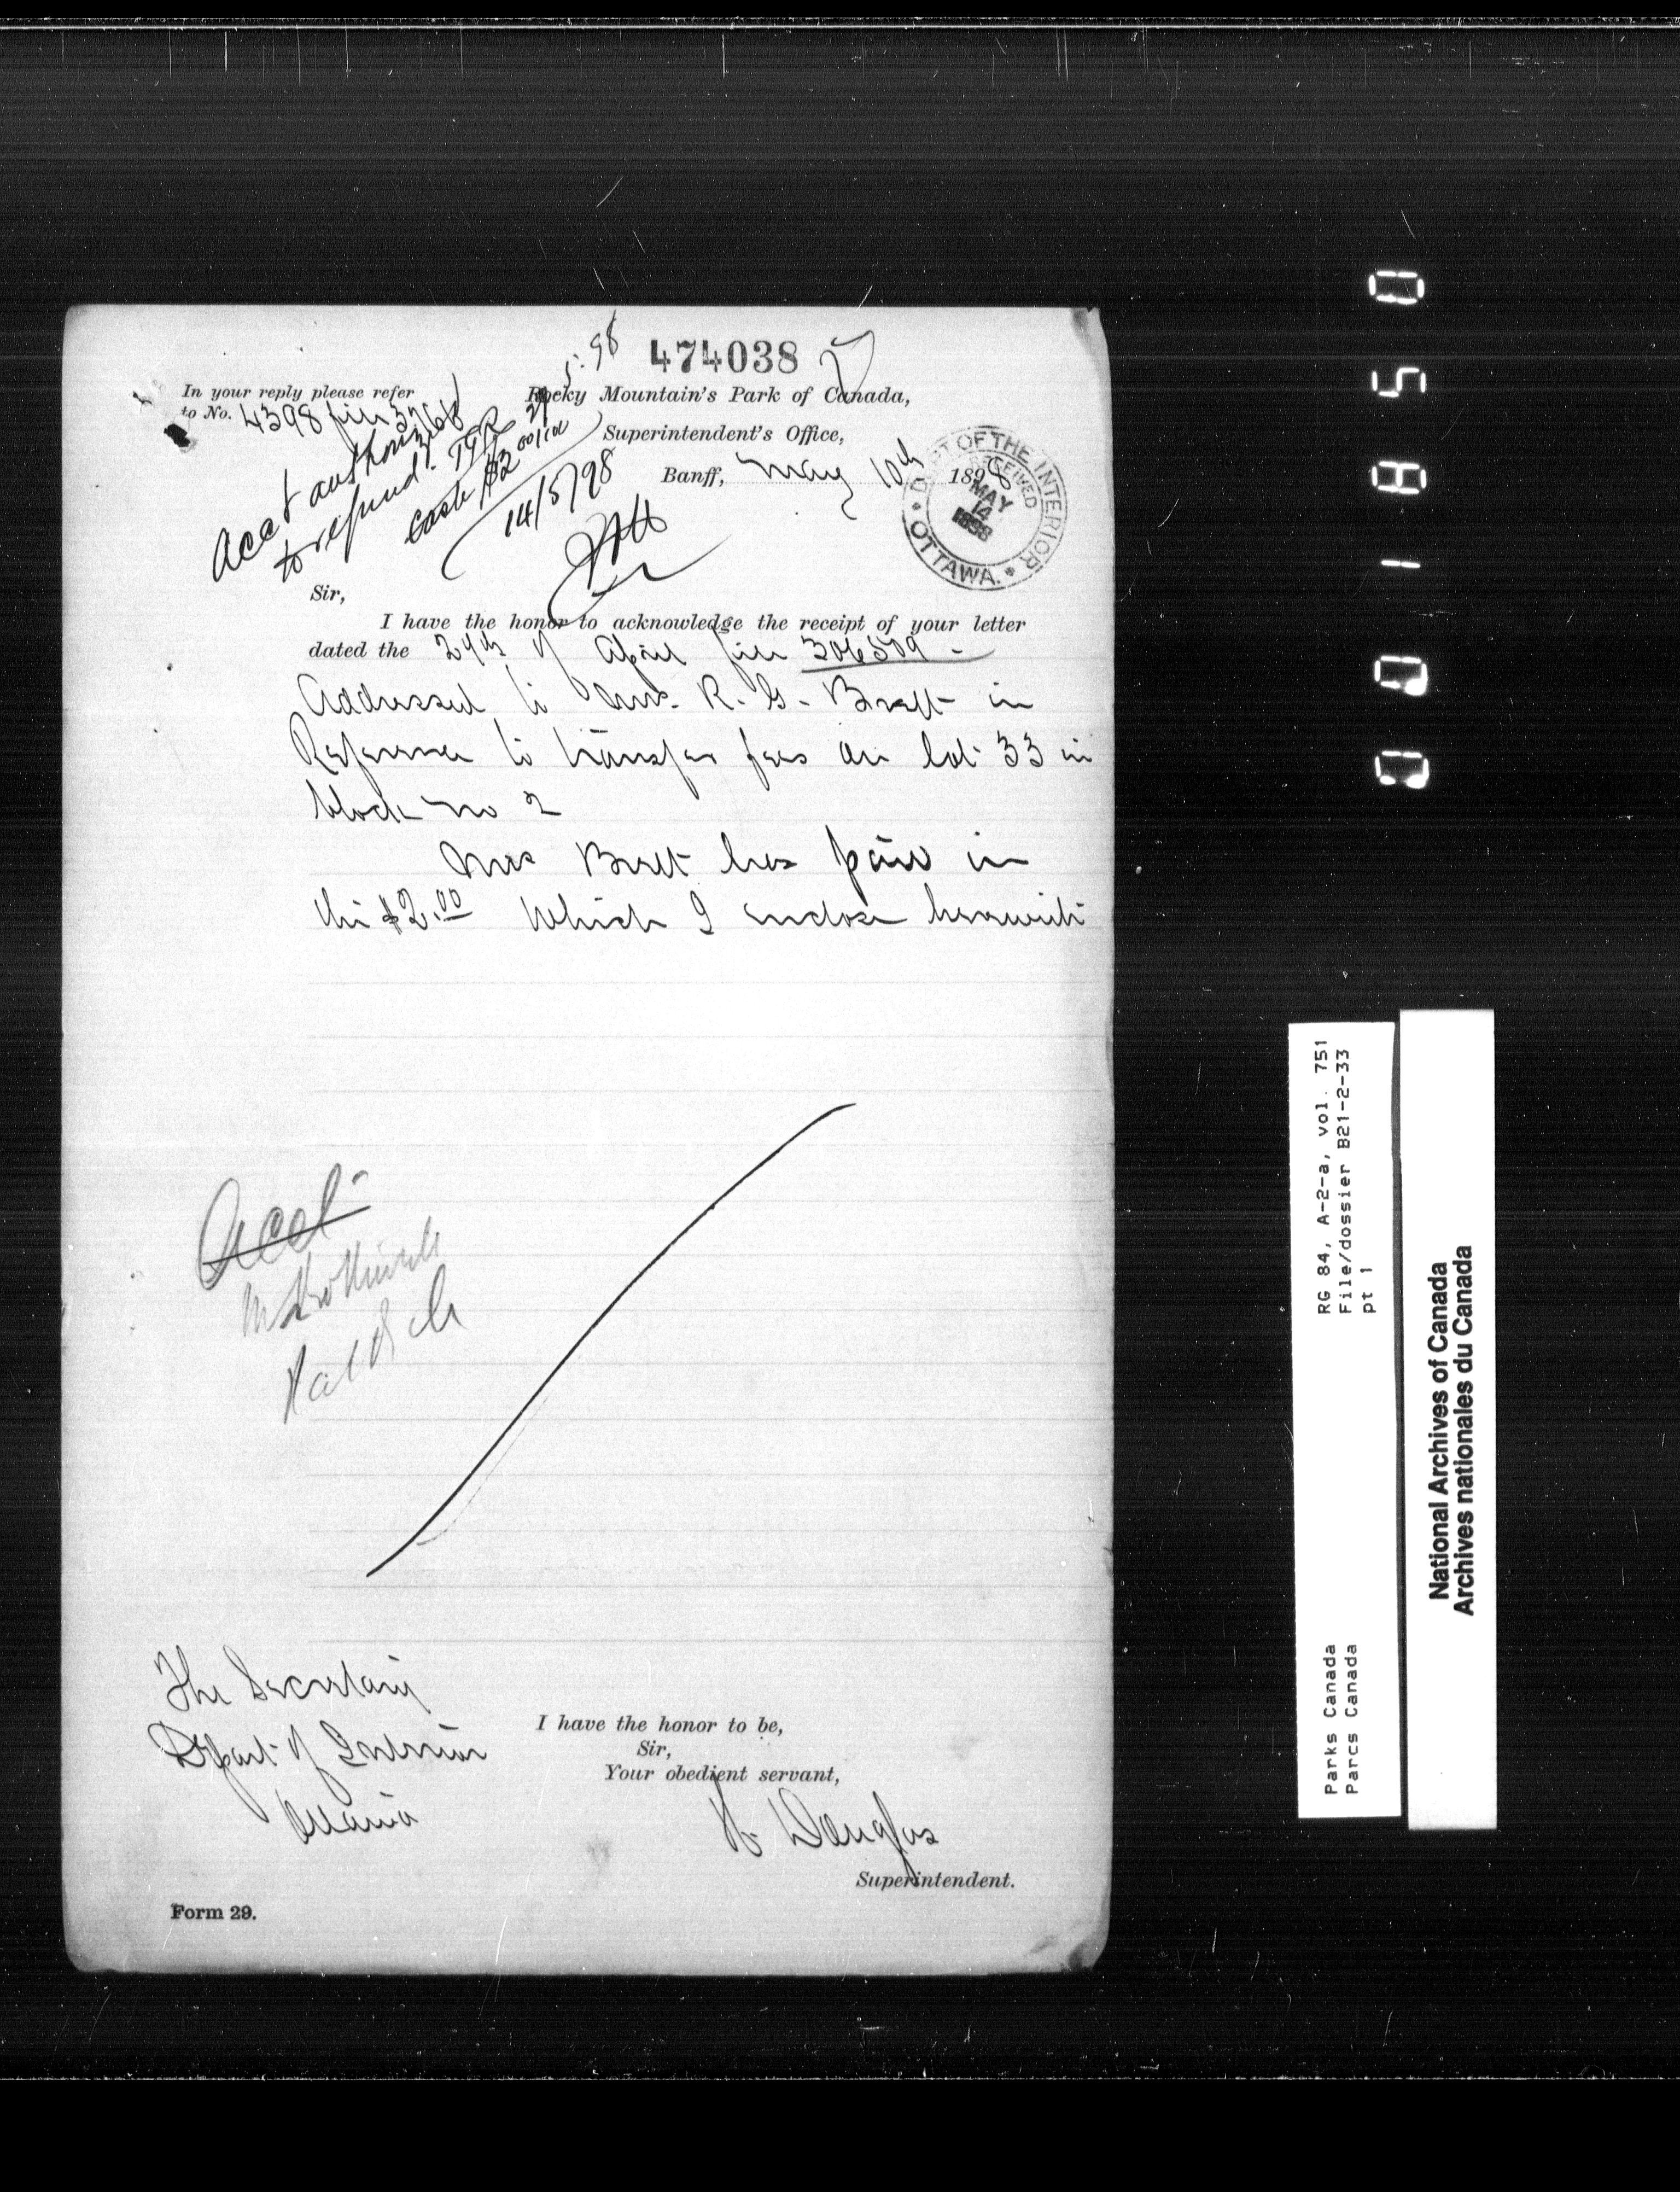 474038
In your reply please refer
to No. 4398 file 3768
Rocky Mountain's Park of Canada,
Superintendent's Office,
Banff, May 10th 1898
DEPT OF THE INTERIOR
RECEIVED
MAY
14
1898
OTTAWA.
Acct authorized
to refund. 
Cash $2 00/100
14/5/98
Sir,
I have the honor to acknowledge the receipt of your letter
dated the 29th of April file 306509 -
Addressed to Mrs. R. G. Brett in
Reference to transfer fees on lot 33 in
block no 2
Mrs Brett has paid in
the $2.00 Which I enclose herewith
Acct
The Secretary
Depart of Interior
Ottawa
I have the honor to be,
Sir,
Your obedient servant,
H. Douglas
Superintendent.
Form 29.
001850
RG 84, A-2-a, vol. 751
File/dossier B21-2-33
pt 1
Parks Canada
Parcs Canada
National Archives of Canada
Archives nationales du Canada